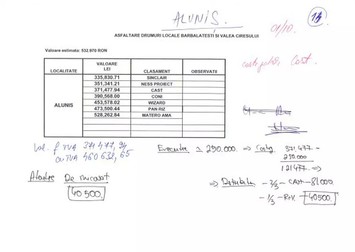 ALUNIȘ.
13
ASFALTARE DRUMURI LOCALE BARBALATESTI SI VALEA CIRESULUI
01/10.
Valoare estimata: 532.970 RON
LOCALITATE VALOARE LEI CLASAMENT OBSERVATII
ALUNIS
335,830.71 SINCLAIR
351,341.21 NESS PROIECT
371,477.94 CAST
390,568.00 CONI
453,578.02 WIZARD
473,500.44 PAN-RIZ
528,262.84 WATERO AMA
Cast.
Val. f TVA 371 477,94
cu TVA 460 632,65
Executie ≈ 250.000 → Castig 371.477 -
250.000
121.477 →
40 500
→ - 2/3 - CAST - 81.000
- 1/3 - - 40500